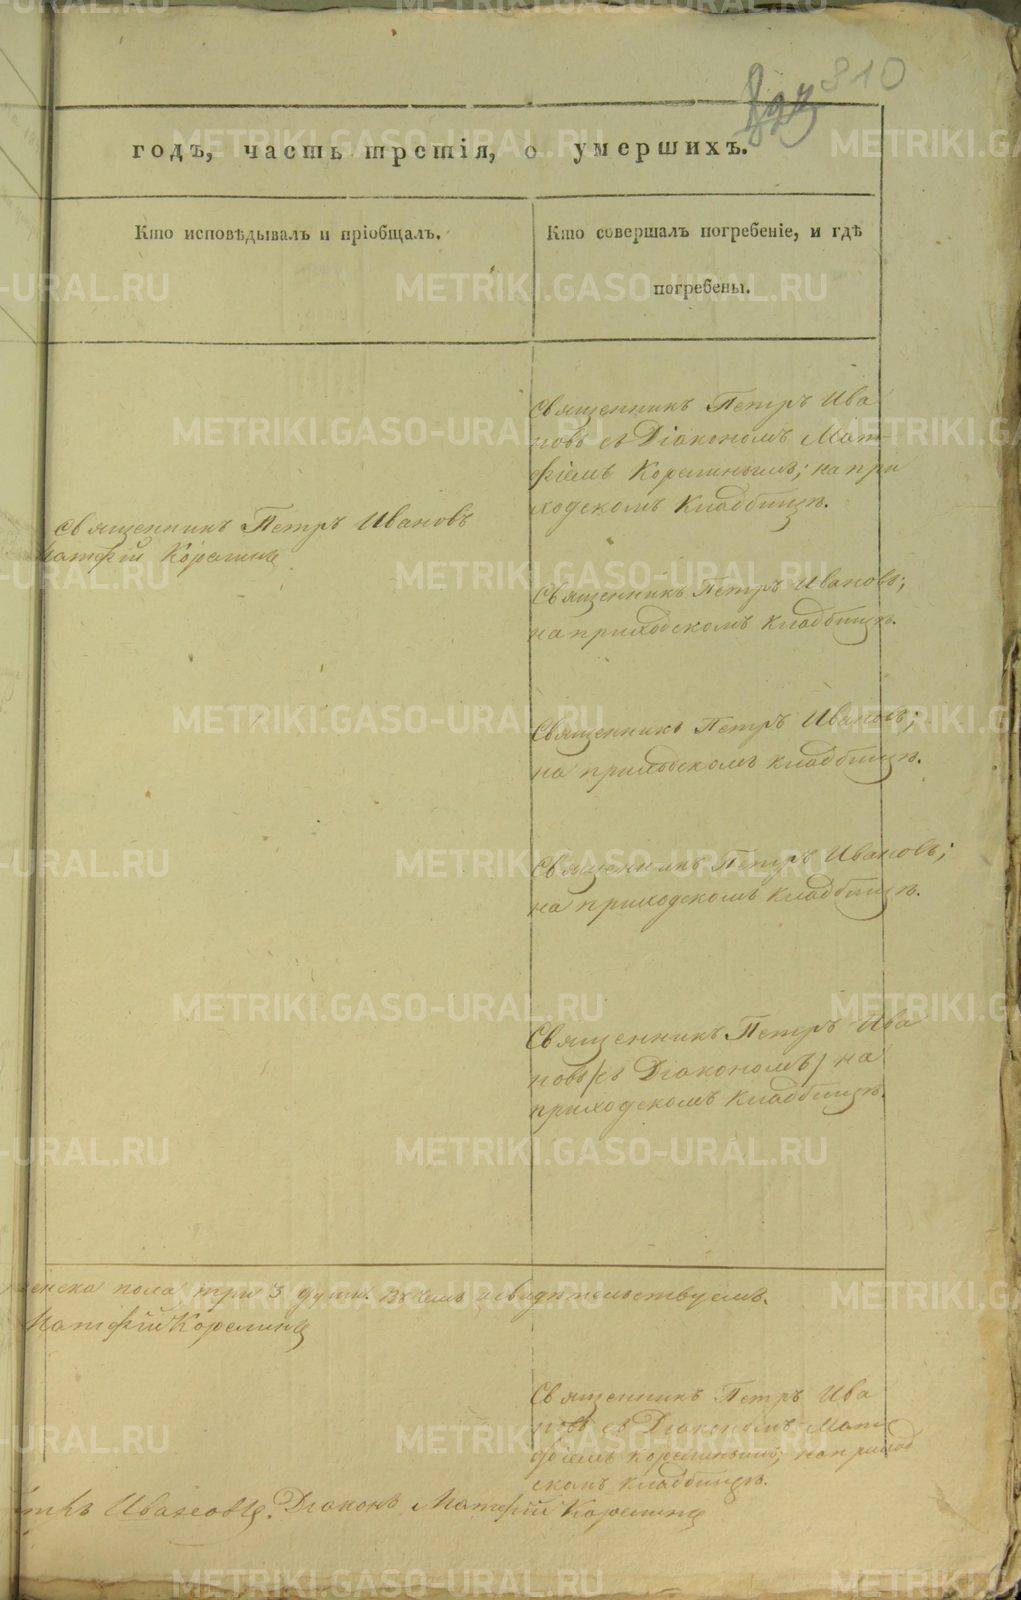 810
годъ, часть третія, о умершихъ.
Кто исповѣдывалъ и пріобщалъ.
Кто совершалъ погребеніе, и гдѣ
погребены.
Священникъ Петръ Ива
новъ съ Діакономъ Мат-
фіемъ Корелинымъ; на при
ходскомъ Кладбищѣ.
Священникъ Петръ Ивановъ
Матфій Корелинъ
Священникъ Петръ Ивановъ;
на приходскомъ кладбищѣ.
Священникъ Петръ Ивановъ;
на приходскомъ кладбищѣ.
Священникъ Петръ Ивановъ;
на приходскомъ кладбищѣ.
Священникъ Петръ Ива
новъ /съ Діакономъ/ на
приходскомъ Кладбищѣ.
женска пола три 3 души. Въ чемъ и свидѣтельствуемъ.
Матфій Корелинъ
Священникъ Петръ Ива
новъ съ Діакономъ Мат
фіемъ Корелинымъ; на приход
скомъ кладбищѣ.
етръ Ивановъ. Діаконъ Матфій Корелинъ
METRIKI.GASO-URAL.RU